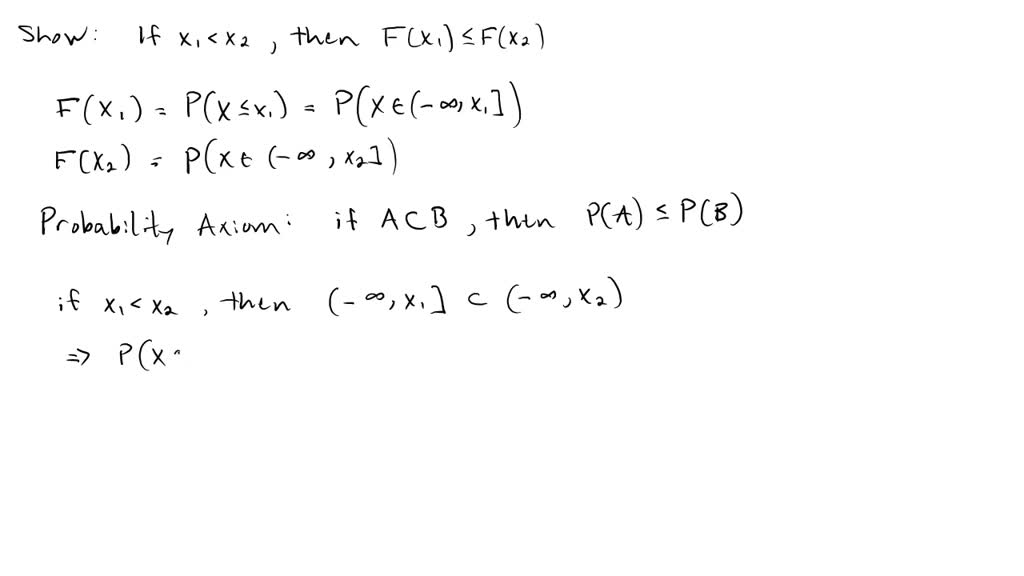 Show: If x₁ < x₂, then F(x₁) ≤ F(x₂)
F(x₁) = P(X ≤ x₁) = P(X ∈ (-∞, x₁])
F(x₂) = P(X ∈ (-∞, x₂])
Probability Axiom: if A ⊂ B, then P(A) ≤ P(B)
if x₁ < x₂, then (-∞, x₁] ⊂ (-∞, x₂)
⇒ P(X